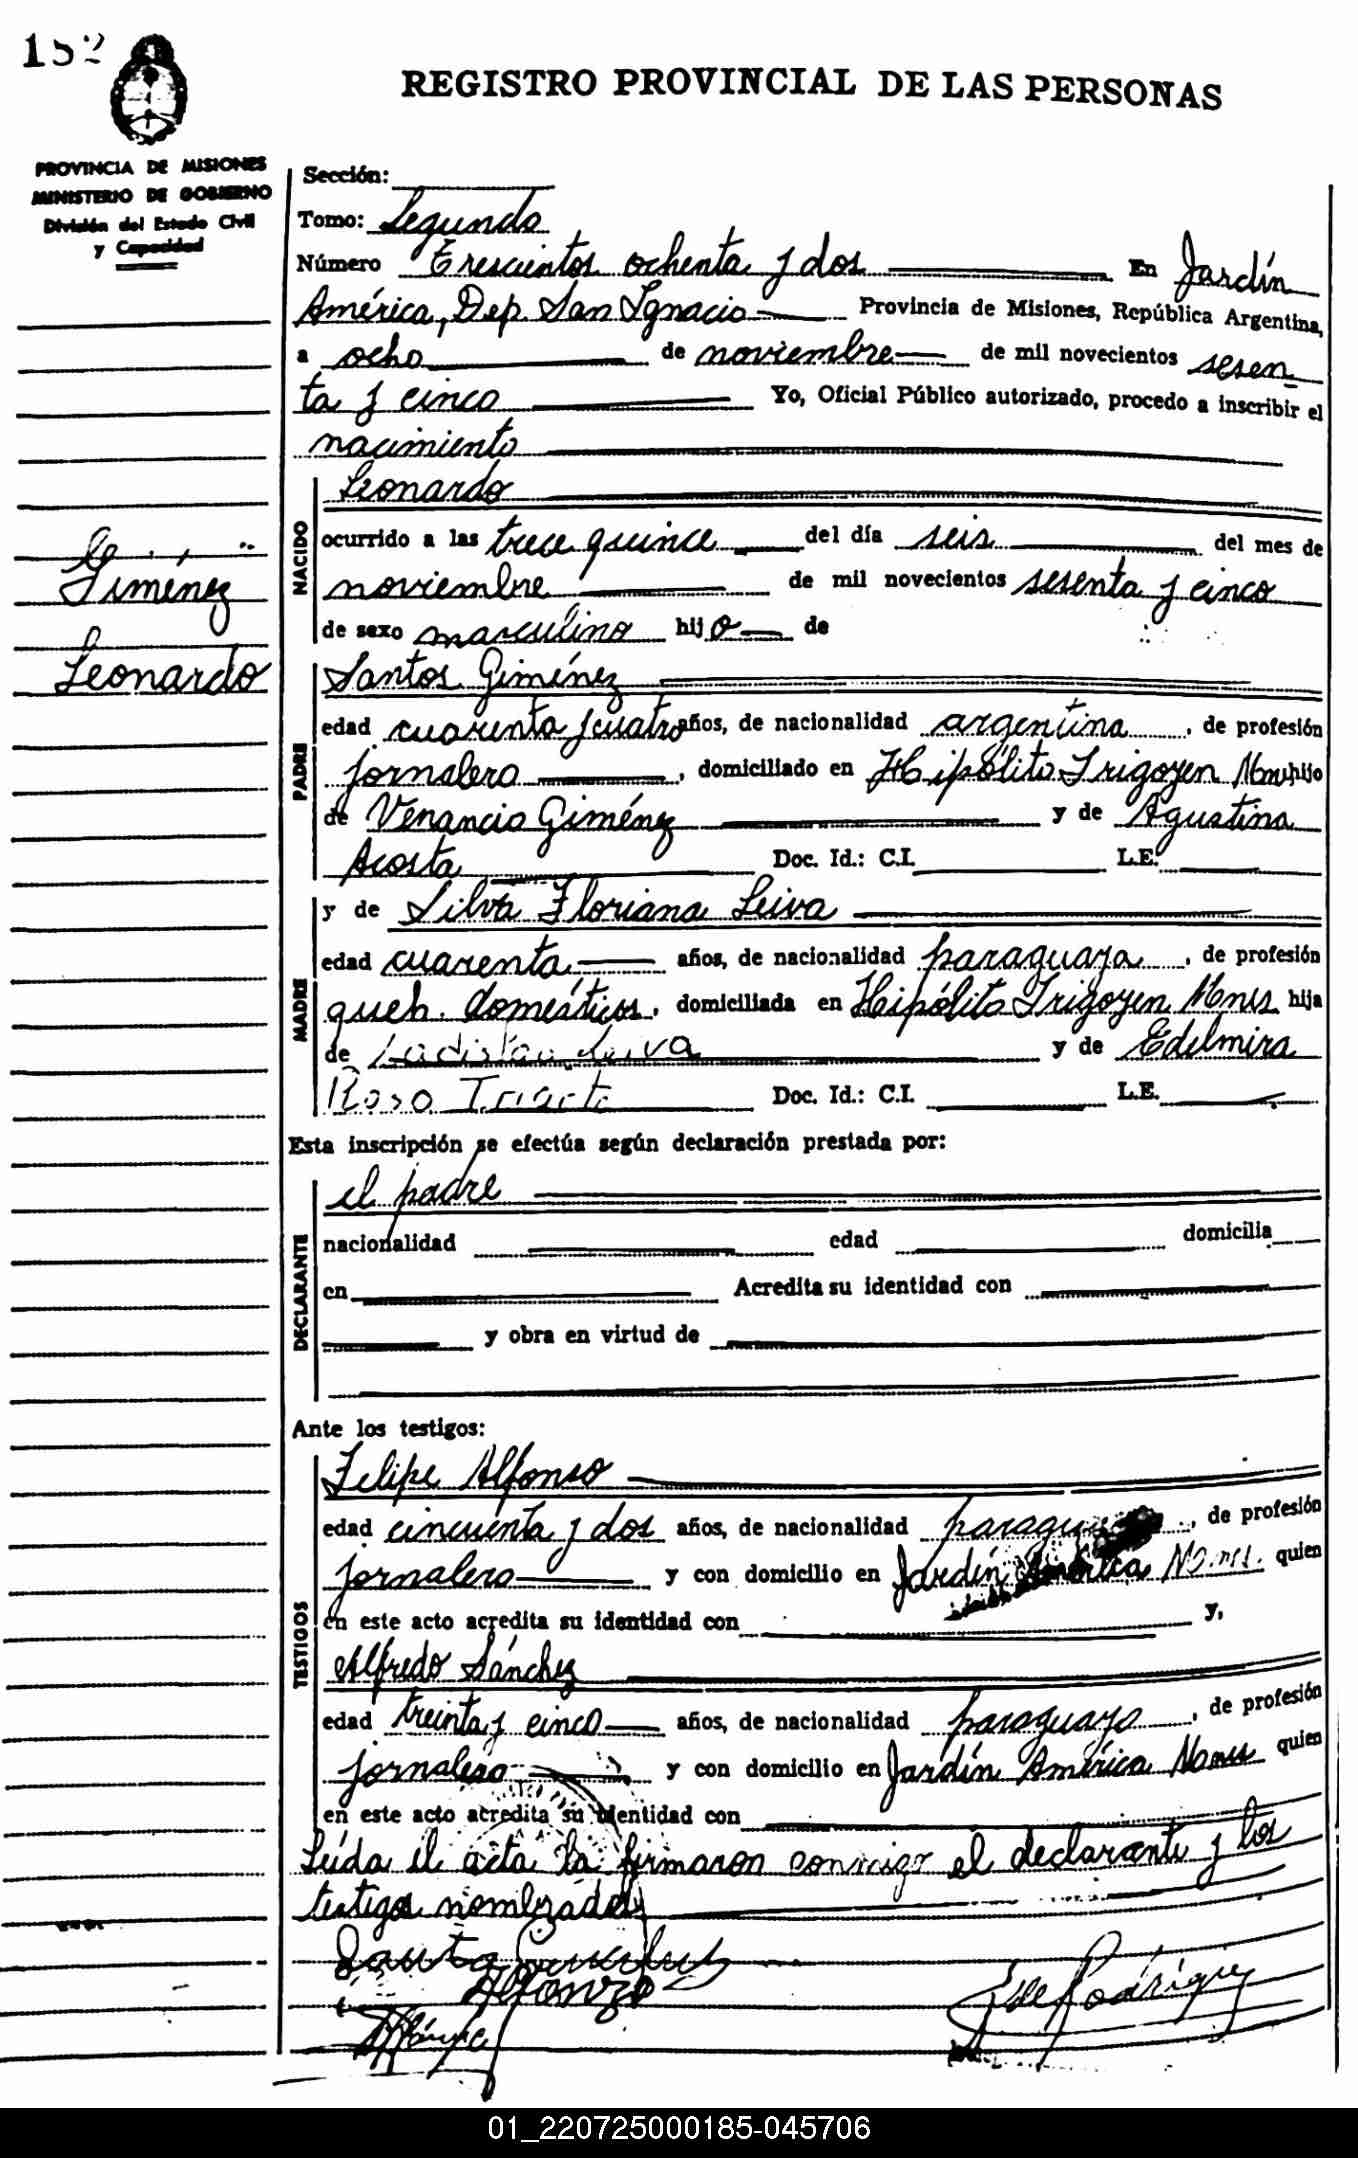 182
REGISTRO PROVINCIAL DE LAS PERSONAS
PROVINCIA DE MISIONES
MINISTERIO DE GOBIERNO
División del Estado Civil
y Capacidad
Sección:
Tomo: Segundo
Número Trescientos ochenta y dos En Jardín
América, Dep. San Ignacio Provincia de Misiones, República Argentina,
a ocho de noviembre de mil novecientos sesen
ta y cinco Yo, Oficial Público autorizado, procedo a inscribir el
nacimiento
Giménez
Leonardo
NACIDO
Leonardo
ocurrido a las trece quince del día seis del mes de
noviembre de mil novecientos sesenta y cinco
de sexo masculino hijo de
PADRE
Santos Giménez
edad cuarenta y cuatro años, de nacionalidad argentina, de profesión
jornalero, domiciliado en Hipólito Irigoyen Mnes hijo
de Venancio Giménez y de Agustina
Acosta Doc. Id.: C.I. L.E.
MADRE
y de Silva Floriana Leiva
edad cuarenta años, de nacionalidad paraguaya, de profesión
queh. domésticos, domiciliada en Hipólito Irigoyen Mnes hija
de Ladislau Leiva y de Edelmira
Doc. Id.: C.I. L.E.
Esta inscripción se efectúa según declaración prestada por:
DECLARANTE
el padre
nacionalidad edad domicilia
en Acredita su identidad con
y obra en virtud de
Ante los testigos:
TESTIGOS
Felipe Alfonso
edad cincuenta y dos años, de nacionalidad, de profesión
jornalero y con domicilio en Jardín América Mnes. quien
en este acto acredita su identidad con y,
Alfredo Sánchez
edad treinta y cinco años, de nacionalidad paraguayo, de profesión
jornalero y con domicilio en Jardín América Mnes quien
en este acto acredita su identidad con
Leída el acta la firmaron conmigo el declarante y los
testigos nombrados
Alfonzo
Rodríguez
01_220725000185-045706